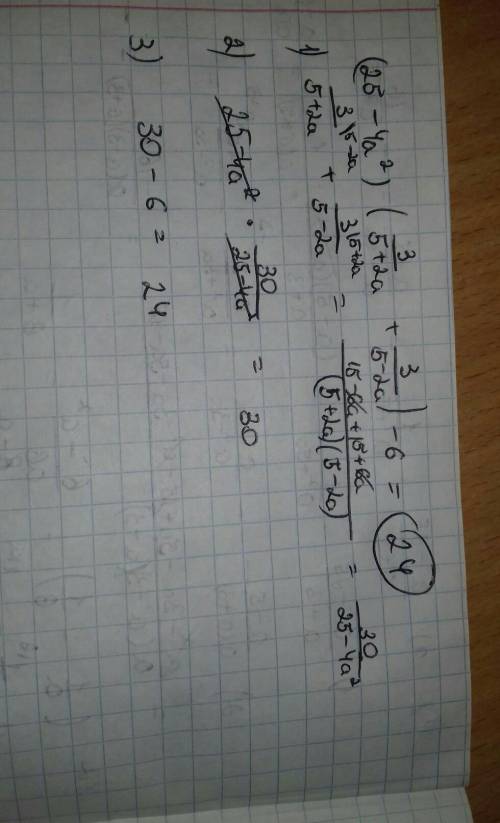 (25 - 4a²) (3/(5+2a) + 3/(5-2a)) - 6 = 24
1) 3\5-2a/(5+2a) + 3\5+2a/(5-2a) = (15-6a+15+6a)/((5+2a)(5-2a)) = 30/(25-4a²)
2) 25-4a² · 30/(25-4a²) = 30
3) 30 - 6 = 24